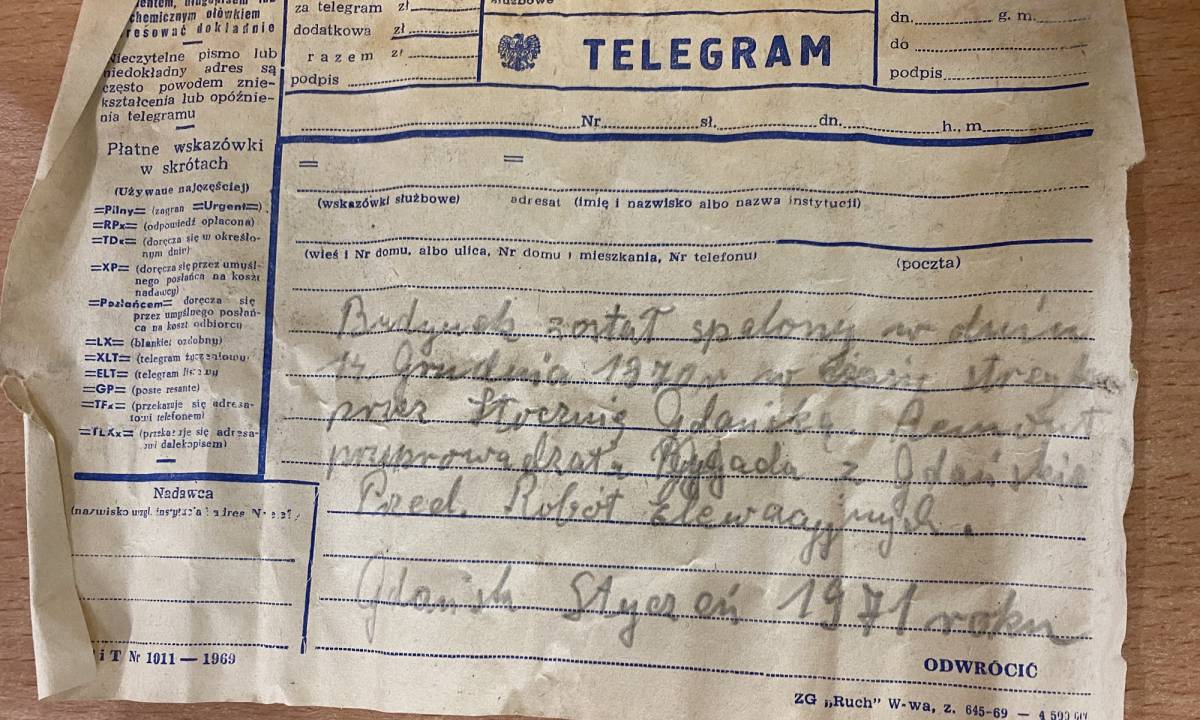 chemicznym ołówkiem
resować dokładnie
Nieczytelne pismo lub
niedokładny adres są
często powodem znie-
kształcenia lub opóźnie-
nia telegramu
Płatne wskazówki
w skrótach
(Używane najczęściej)
=Pilny= (zagran =Urgent=)
=RPx= (odpowiedź opłacona)
=TDx= (doręcza się w określo-
nym dniu)
=XP= (doręcza się przez umyśl-
nego posłańca na koszt
nadawcy)
=Posłańcem= doręcza się
przez umyślnego posłań-
ca na koszt odbiorcy
=LX= (blankiet ozdobny)
=XLT= (telegram życzeniowy
=ELT= (telegram
=GP= (poste resante)
=TFx= (przekazuje się adresa-
towi telefonem)
=TLXx= (przekazuje się adresa-
towi dalekopisem)
Nadawca
(nazwisko wzgl. instytucja i adres
i T Nr 1011 — 1969
za telegram zł
dodatkowa zł
razem zł
podpis
służbowe
TELEGRAM
dn. g. m.
do
podpis
Nr sł. dn. h., m.
= =
(wskazówki służbowe) adresat (imię i nazwisko albo nazwa instytucji)
(wieś i Nr domu, albo ulica, Nr domu i mieszkania, Nr telefonu)
(poczta)
Budynek został spalony w dniu
14 Grudnia 1970r w czasie
przez Stocznię Gdańską. Remont
Brygada z Gdańskie
Przed. Robót Elewacyjnych.
Gdańsk Styczeń 1971 roku
ODWRÓCIĆ
ZG „Ruch" W-wa, z. 645-69 — 4 500